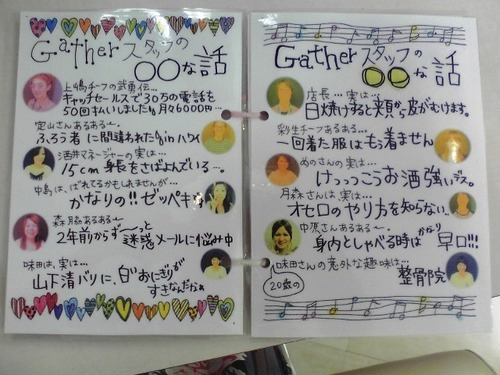 Gatherスタッフの
○○な話
上嶋チーフの武勇伝…
キャッチセールスで30万の電話を
50回払いしました。月々6000円…
定山さんあるある〜。
ふろう者に間違われた@inハワイ
酒井マネージャーの実は…
15cm身長をさばよんでいる…。
中島は、ばれてるかもしれませんが…
かなりの!!ゼッペキ
森脇あるある〜
2年前からず〜っと迷惑メールに悩み中
味田は、実は…
山下清バリに、白いおにぎりが
すきなんだなぁ
Gatherスタッフの
○○な話
店長、実は…
日焼けすると頬から皮がむけます。
彩生チーフあるある…
一回着た服はもう着ません
めのさんの実は…
けっっっこうお酒強いデス。
月森さんは、実は…
オセロのやり方を知らない。
中原さんあるある〜
身内としゃべる時はかなり早口!!!
味田さんの意外な趣味は…
20歳の
整骨院